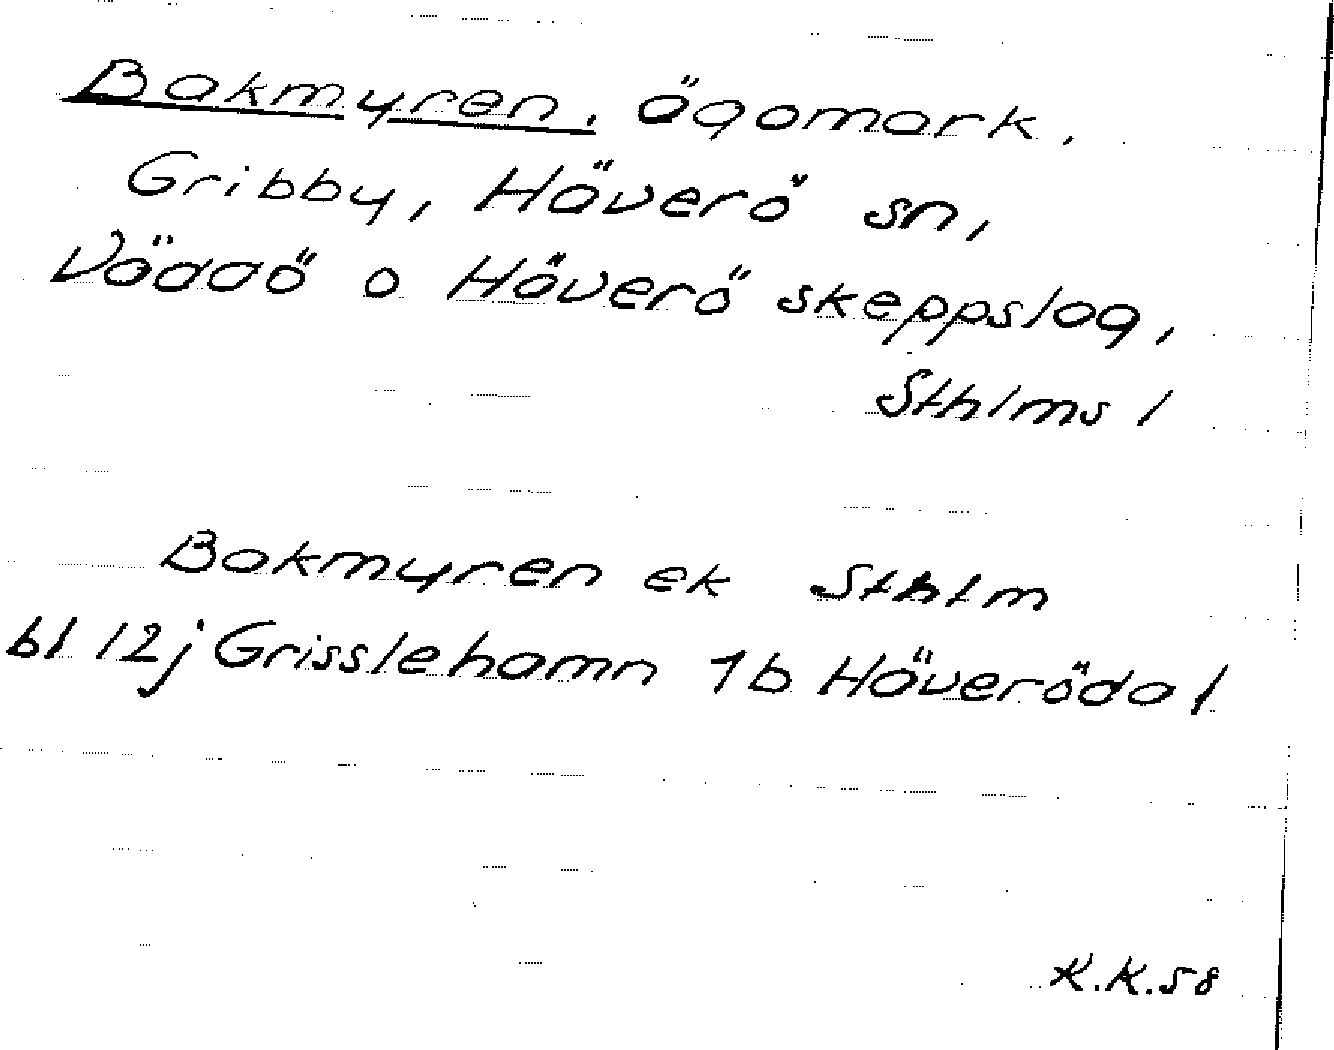 Bakmyren, ägomark,
Gribby, Häverö sn,
Väddö o Häverö skeppslag,
Sthlms l
Bakmyren ek Sthlm
bl 12j Grisslehamn 1b Häverödal
K.K.58